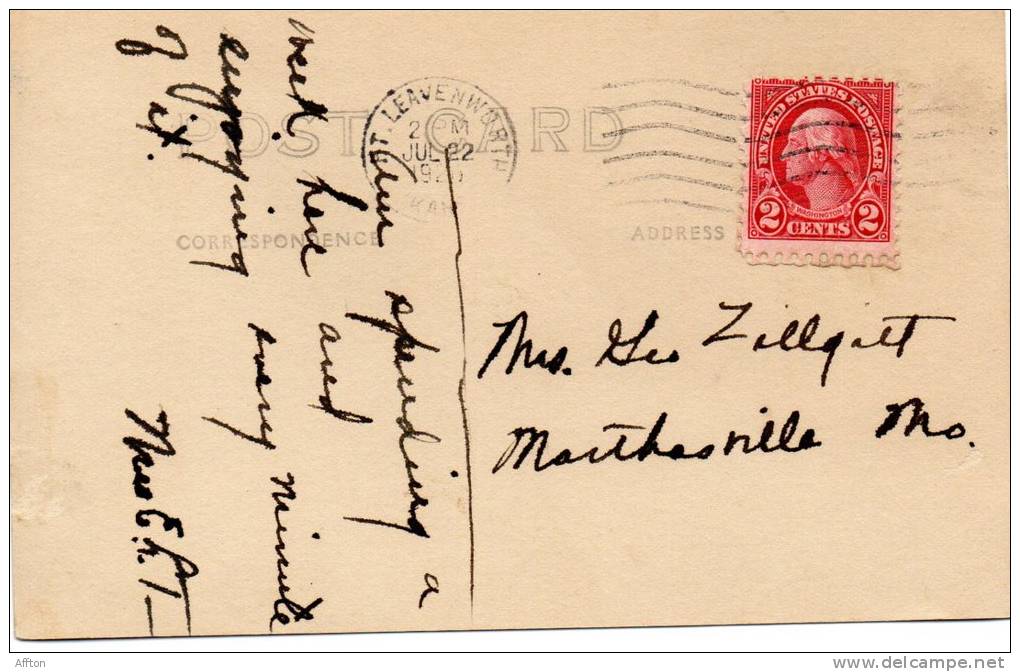 POST CARD
FT. LEAVENWORTH
2 PM
JUL 22
KAN
CORRESPONDENCE
ADDRESS
UNITED STATES POSTAGE
WASHINGTON
2 CENTS 2
Am spending a
week here and
enjoying every minute
of it.
Mrs E.
Mrs. Geo Zillgitt
Marthasville Mo.
Affton
www.delcampe.net